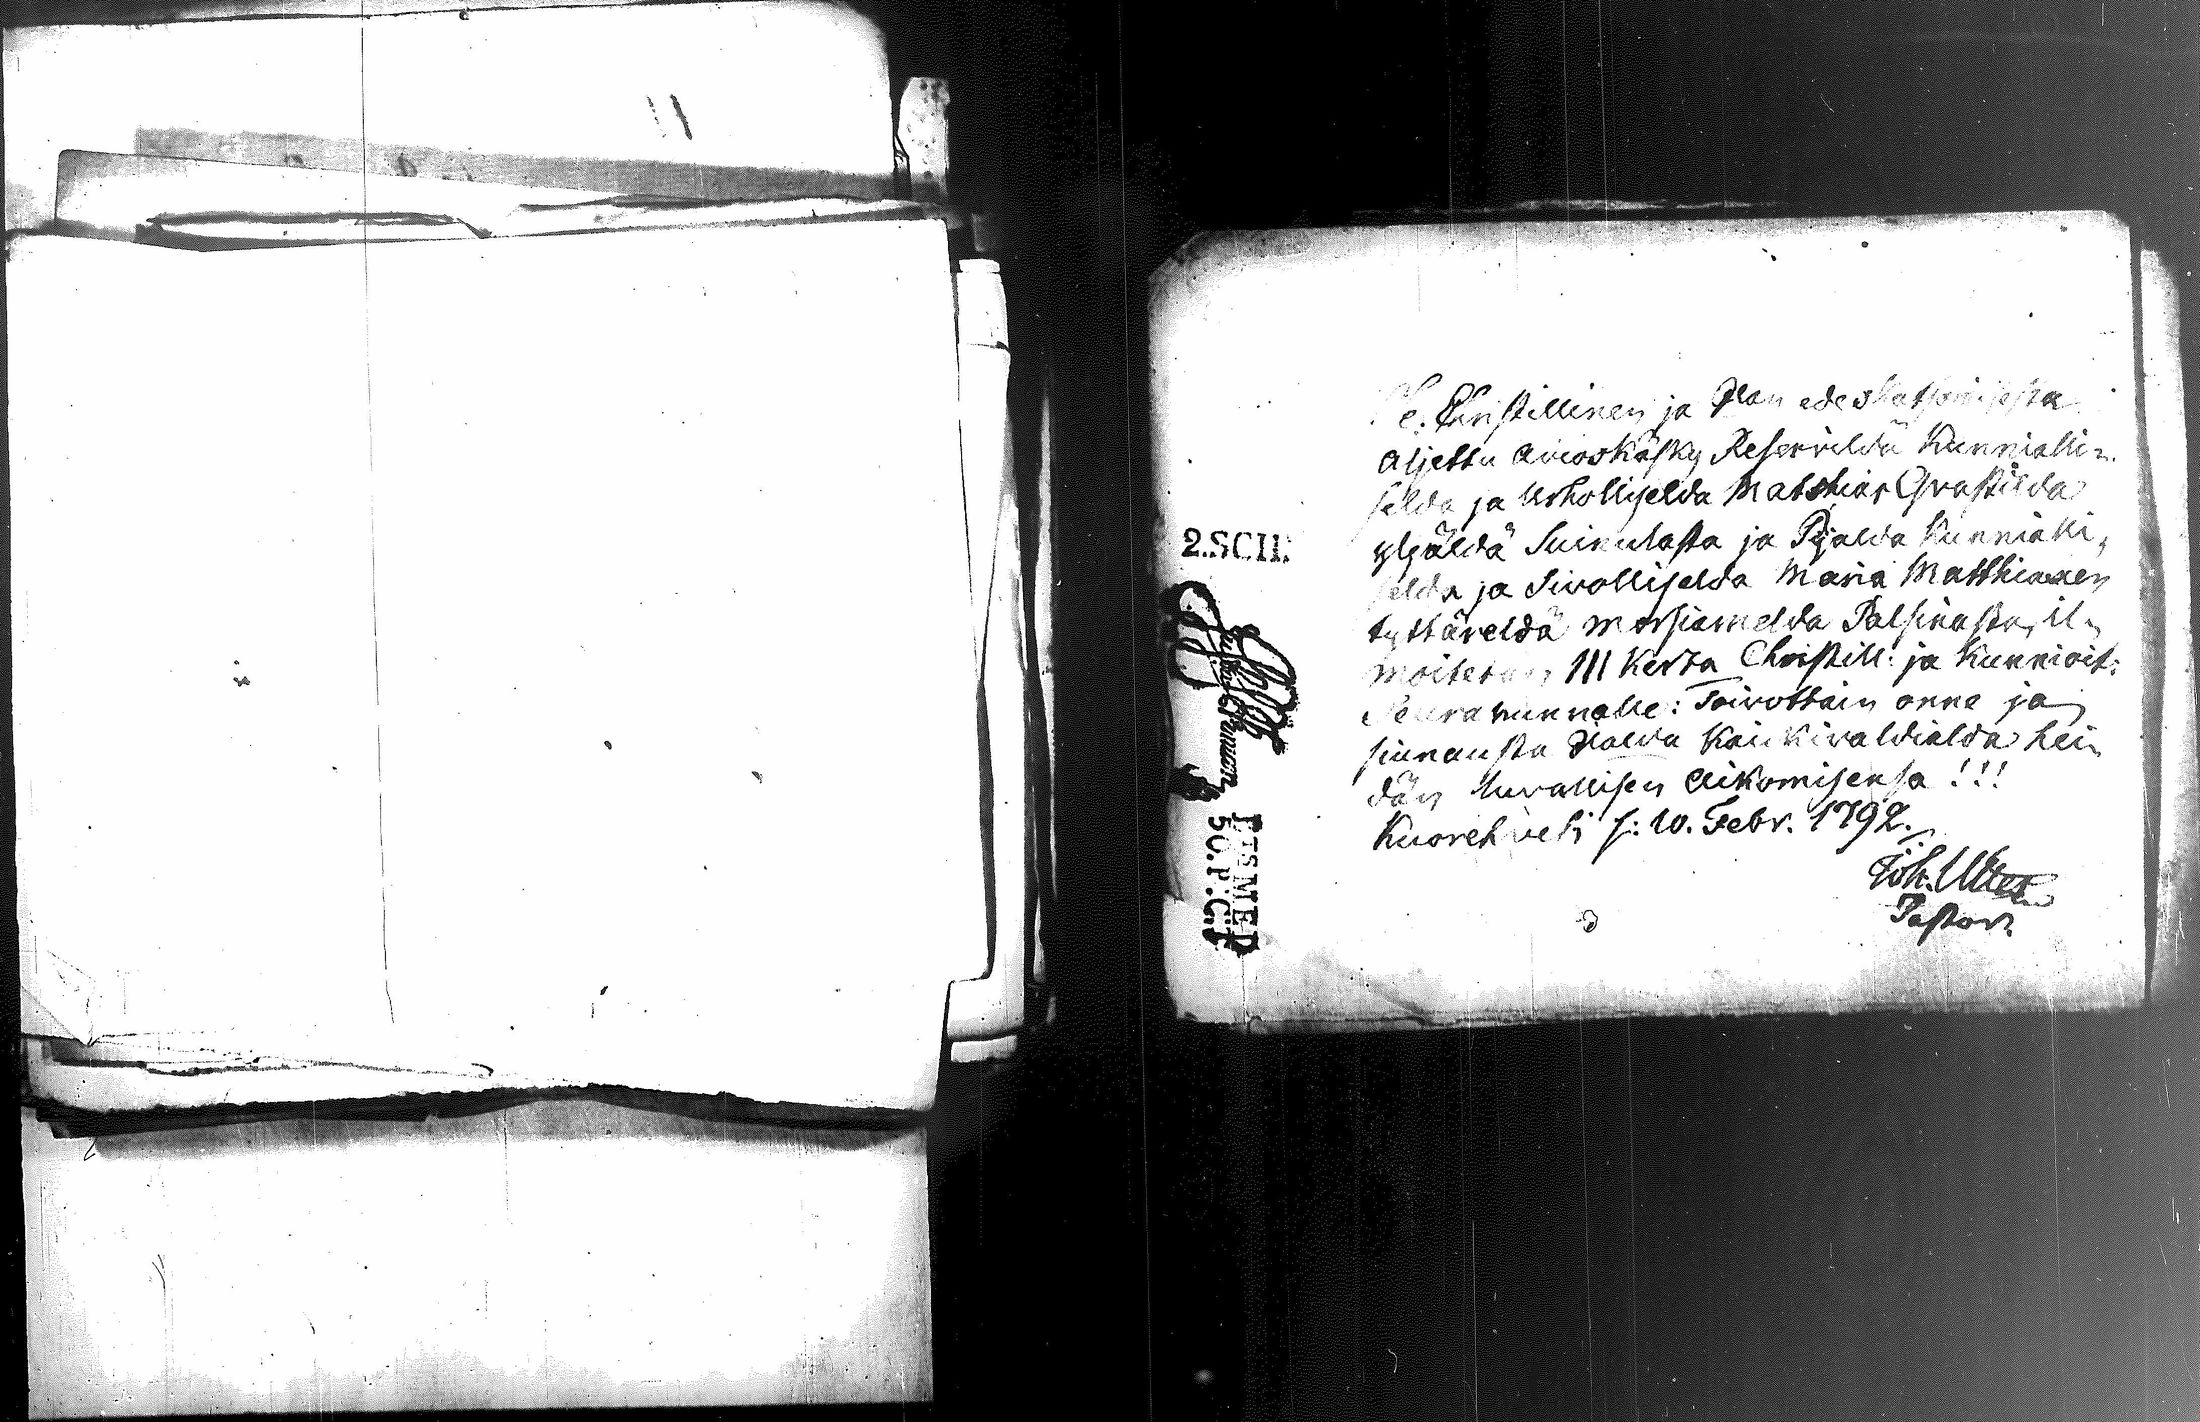 Se Christillinen ja Ylön edeskatsomisesta
aljettu avioskäsky Reservildä Kunnialli-
selda ja Urhollijelda Matthias Grastilda
yljäldä Suinulasta ja Pijalda Kunnialli,
selda ja Sivollijelda Maria Matthiaxen
tyttäreldä morsiamelda Palsinasta, il-
moitetan III Kerta Christill: ja Kunnioit:
Seurakunnalle: Toivottain onne ja
siunausta Holda Kaikivaldialda hei-
dän luvallisen aikomisensa!!!
Kuorehvesi s: 10. Febr. 1792.
Joh.
Pastor.
2.SCH.